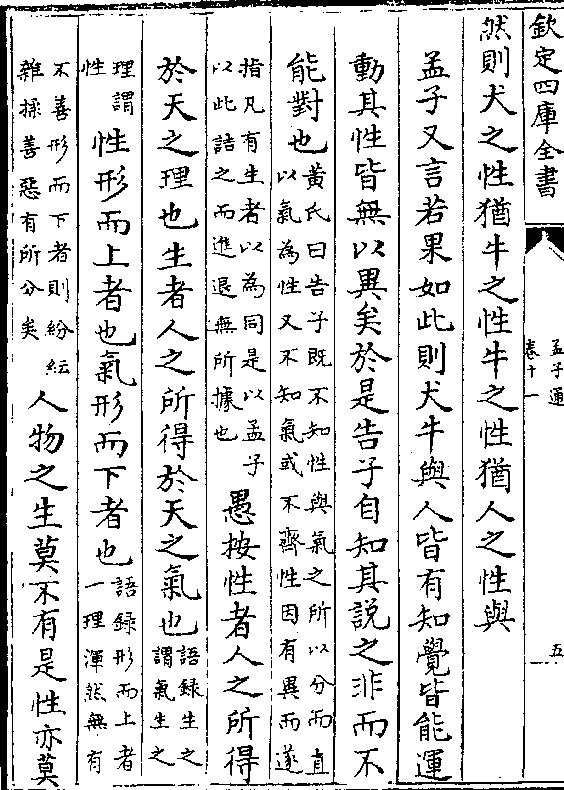 欽定四庫全書
孟子通
卷十一
五
然則犬之性猶牛之性牛之性猶人之性與
孟子又言若果如此則犬牛與人皆有知覺皆能運
動其性皆無以異矣於是告子自知其說之非而不
能對也黃氏曰告子既不知性與氣之所以分而直
以氣為性又不知氣或不齊性因有異而遂
指凡有生者以為同是以孟子
以此詰之而進退無所據也
愚按性者人之所得
於天之理也生者人之所得於天之氣也語録生之
謂氣生之
理謂
性
性形而上者也氣形而下者也語録形而上者
一理渾然無有
不善形而下者則紛紜
雜揉善惡有所分矣
人物之生莫不有是性亦莫